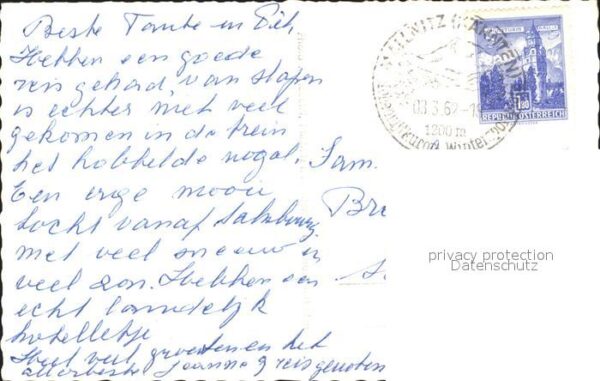 Beste Tante en Dick
Hebben een goede
reis gehad, van slapen
is echter niet veel
gekomen in de trein
het hobbelde nogal.
Een enige mooie
tocht vanaf Salzburg.
met veel sneeuw en
veel zon. Hebben een
echt landelijk
hotelletje
Heel veel groeten en het
allerbeste Joanne & reisgenoten
Fam.
Br
MALLNITZ (KÄRNTEN)
1200 m
1.80
REPUBLIK ÖSTERREICH
privacy protection
Datenschutz